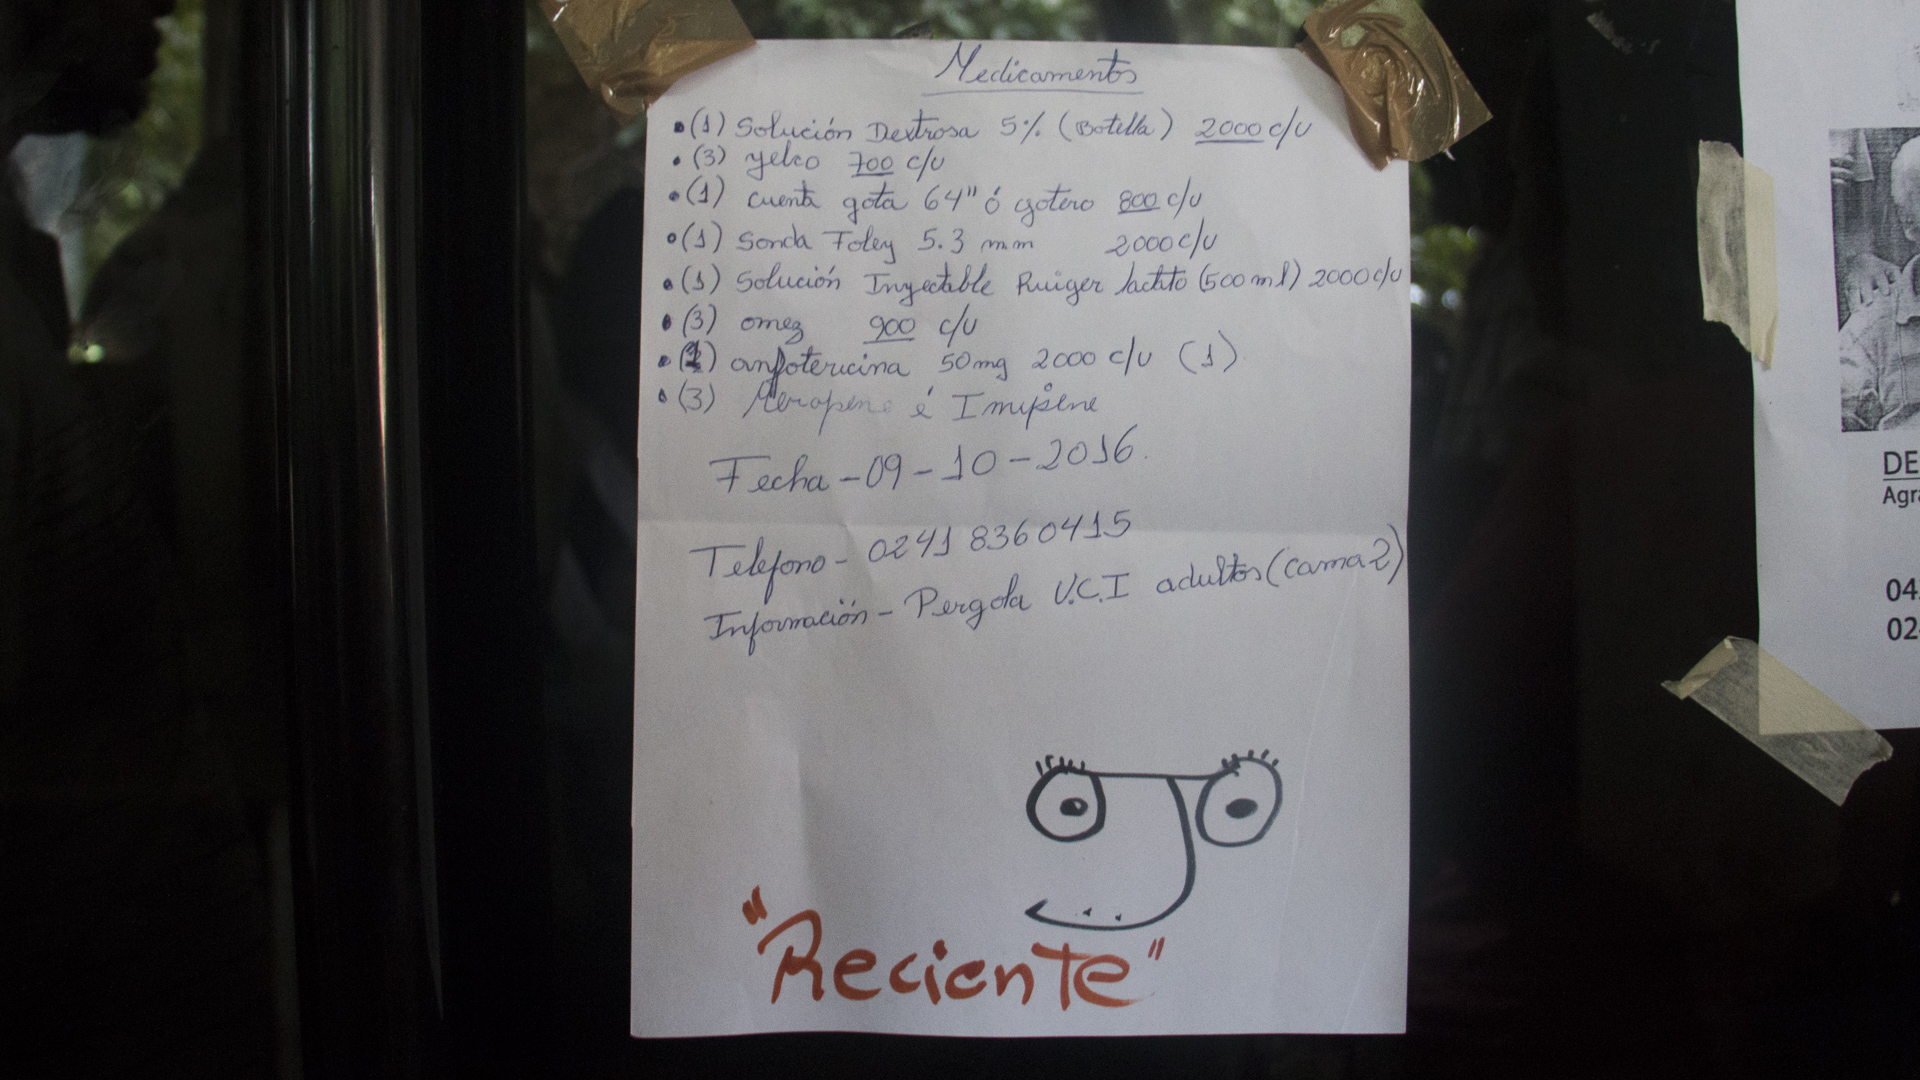 Medicamentos
•(1) Solución Dextrosa 5% (Botella) 2000 c/u
•(3) yelco 700 c/u
•(1) cuenta gota 64" ó gotero 800 c/u
•(1) Sonda Foley 5.3 mm 2000 c/u
•(1) Solución Inyectable Ruiger lactato (500 ml) 2000 c/u
•(3) omez 900 c/u
•(1) anfotericina 50mg 2000 c/u (1)
•(3) Meropene é Imipene
Fecha - 09 - 10 - 2016.
Telefono - 0241 8360415
Información - Pergola U.C.I adultos (cama 2)
"Reciente"
DE
Agra
04
02